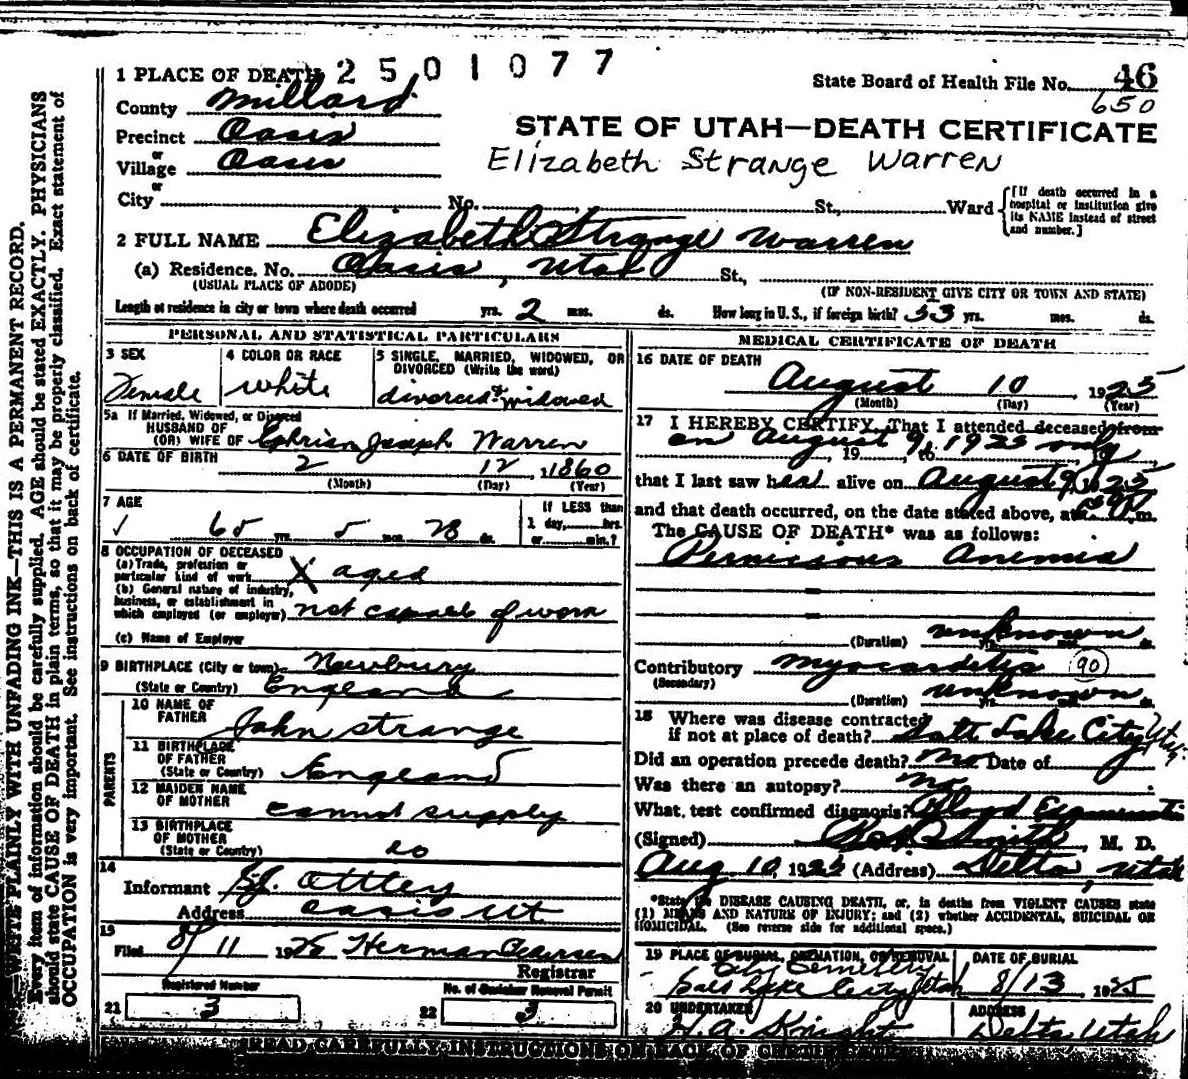 2501077
1 PLACE OF DEATH
State Board of Health File No. 46
650
County Millard
Precinct Oasis
or
Village Oasis
or
City No. St., Ward
[If death occurred in a hospital or institution give its NAME instead of street and number.]
STATE OF UTAH—DEATH CERTIFICATE
Elizabeth Strange Warren
2 FULL NAME Elizabeth Strange Warren
(a) Residence. No. Oasis, Utah St.,
(USUAL PLACE OF ABODE) (IF NON-RESIDENT GIVE CITY OR TOWN AND STATE)
Length of residence in city or town where death occurred yrs. 2 mos. ds. How long in U. S., if foreign birth? 53 yrs. mos. ds.
PERSONAL AND STATISTICAL PARTICULARS
3 SEX
Female
4 COLOR OR RACE
white
5 SINGLE, MARRIED, WIDOWED, OR DIVORCED (Write the word)
divorced & widowed
5a If Married, Widowed, or Divorced
HUSBAND OF
(OR) WIFE OF Joseph Warren
6 DATE OF BIRTH 2 12 1860
(Month) (Day) (Year)
7 AGE
65 yrs. 5 mos. 28 ds.
If LESS than
1 day, hrs.
or min.?
8 OCCUPATION OF DECEASED
(a) Trade, profession or
particular kind of work X aged
(b) General nature of industry,
business, or establishment in
which employed (or employer) not capable of work
(c) Name of Employer
9 BIRTHPLACE (City or town) Newbury
(State or Country) England
PARENTS
10 NAME OF
FATHER John Strange
11 BIRTHPLACE
OF FATHER
(State or Country) England
12 MAIDEN NAME
OF MOTHER cannot supply
13 BIRTHPLACE
OF MOTHER
(State or Country) do
14
Informant Ottley
Address Oasis Ut
15
Filed 8/11 1925 Herman
Registrar
Registered Number
21 3
No. of Burial or Removal Permit
22 3
MEDICAL CERTIFICATE OF DEATH
16 DATE OF DEATH
August 10 1925
(Month) (Day) (Year)
17 I HEREBY CERTIFY, That I attended deceased from
on August 9, 1925 only
, 19 , to 19
that I last saw her alive on August 9, 1925
and that death occurred, on the date stated above, at m.
The CAUSE OF DEATH* was as follows:
Pernicious Anemia
(Duration) unknown yrs. mos. ds.
Contributory myocarditis 90
(Secondary)
(Duration) unknown yrs. mos. ds.
18 Where was disease contracted
if not at place of death? Salt Lake City, Utah.
Did an operation precede death? no Date of
Was there an autopsy? no
What test confirmed diagnosis? Blood
(Signed) Smith, M. D.
Aug 10, 1925 (Address) Delta, Utah
*State the DISEASE CAUSING DEATH, or, in deaths from VIOLENT CAUSES state
(1) MEANS AND NATURE OF INJURY; and (2) whether ACCIDENTAL, SUICIDAL OR
HOMICIDAL. (See reverse side for additional space.)
19 PLACE OF BURIAL, CREMATION, OR REMOVAL
City Cemetery
Salt Lake City Utah
DATE OF BURIAL
8/13, 1925
20 UNDERTAKER
H. A. Knight
ADDRESS
Delta Utah
READ CAREFULLY INSTRUCTIONS ON BACK OF CERTIFICATE
WRITE PLAINLY WITH UNFADING INK—THIS IS A PERMANENT RECORD.
Every item of information should be carefully supplied. AGE should be stated EXACTLY. PHYSICIANS
should state CAUSE OF DEATH in plain terms, so that it may be properly classified. Exact statement of
OCCUPATION is very important. See instructions on back of certificate.